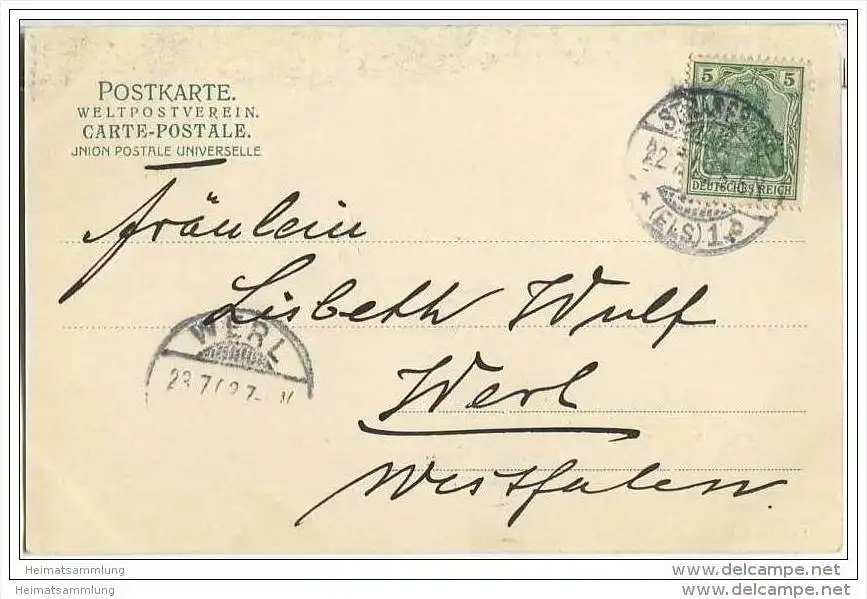 POSTKARTE.
WELTPOSTVEREIN.
CARTE-POSTALE.
UNION POSTALE UNIVERSELLE
5 5
DEUTSCHES REICH
(ELS) 1
Fräulein
Lisbeth Wulf
WERL
Werl
Westfalen.
Heimatsammlung
www.delcampe.net
Heimatsammlung
www.delcampe.net